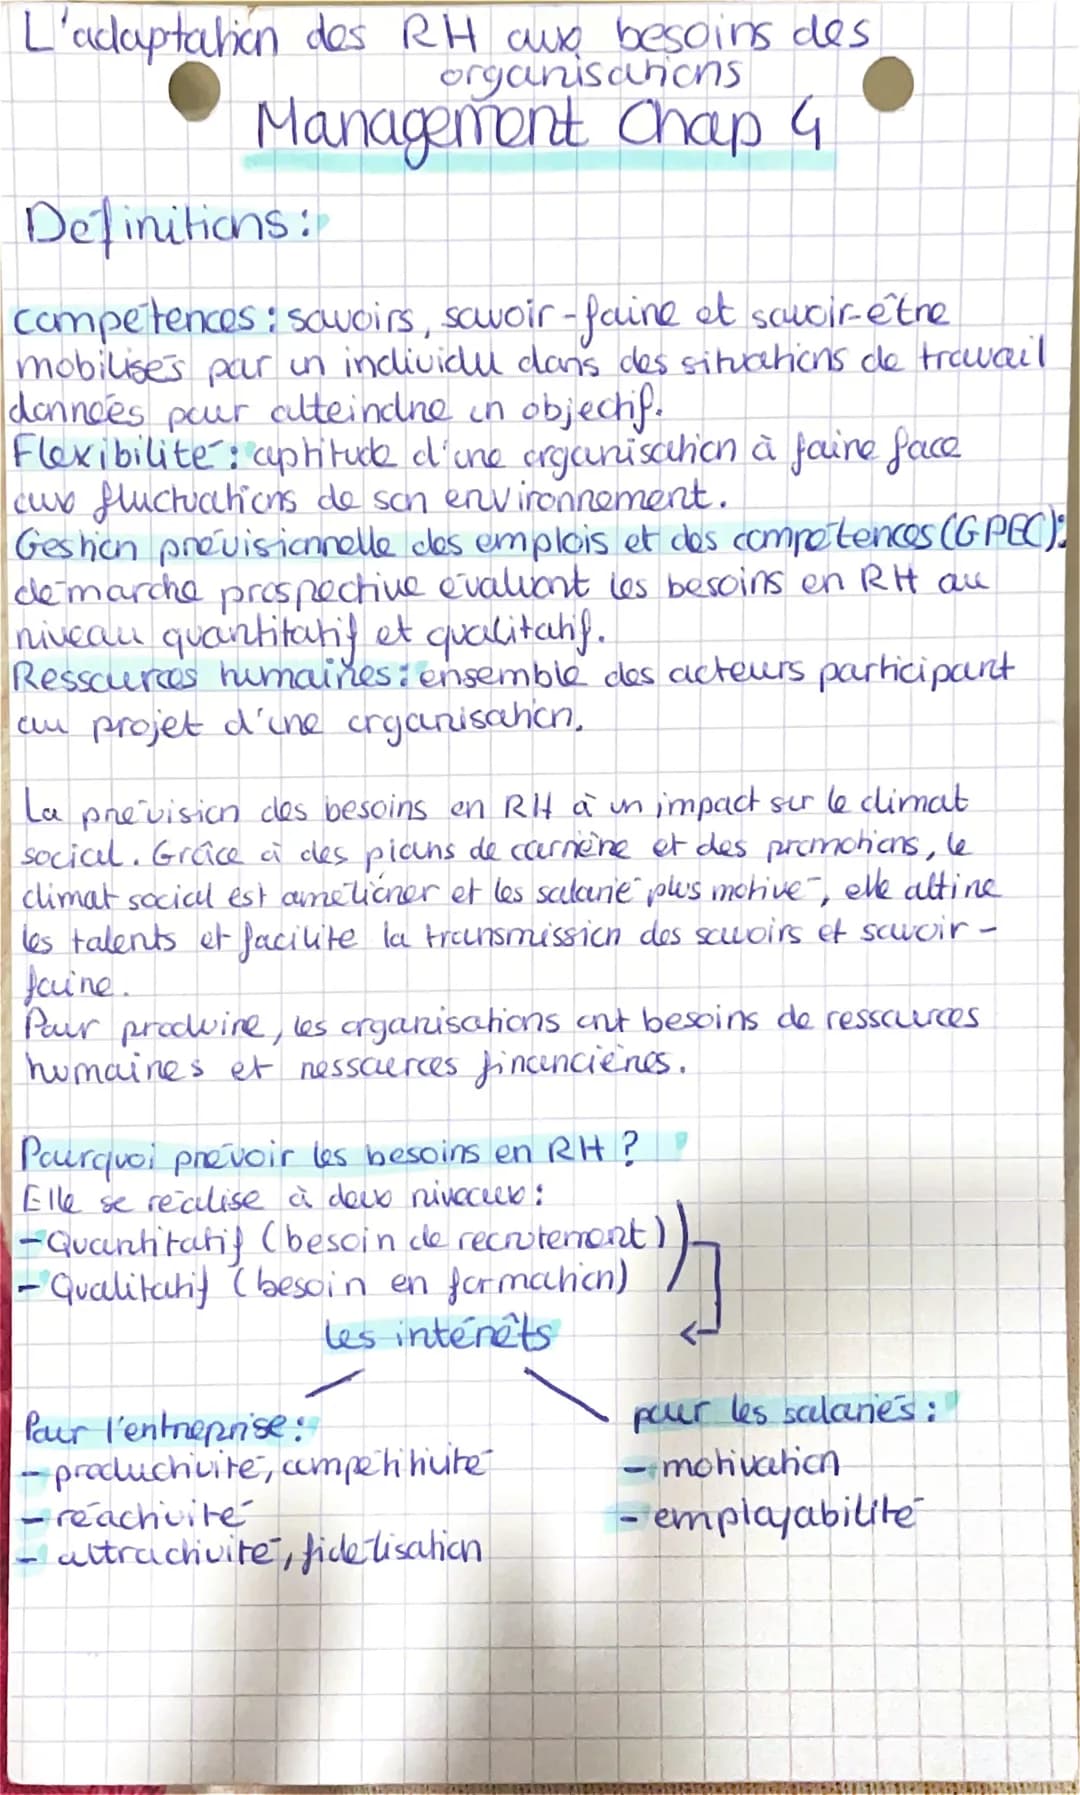 L'adaptation des RH aux besoins des
organisations
Management Chap 4
Definitions :
compétences : savoirs, savoir-faire et savoir-être
mobilisés par un individu dans des situations de travail
données pour atteindre un objectif.
Flexibilité : aptitude d'une organisation à faire face
aux fluctuations de son environnement.
Gestion prévisionnelle des emplois et des compétences (GPEC) :
démarche prospective évaluant les besoins en RH au
niveau quantitatif et qualitatif.
Ressources humaines : ensemble des acteurs participant
au projet d'une organisation.
La prévision des besoins en RH à un impact sur le climat
social. Grâce à des plans de carrière et des promotions, le
climat social est améliorer et les salarié plus motivé, elle attire
les talents et facilite la transmission des savoirs et savoir-
faire.
Pour produire, les organisations ont besoins de ressources
humaines et ressources financières.
Pourquoi prévoir les besoins en RH ?
Elle se réalise à deux niveaux :
- Quantitatif (besoin de recrutement)
- Qualitatif (besoin en formation)
les intérêts
Pour l'entreprise :
- productivité, compétitivité
- réactivité
- attractivité, fidélisation
pour les salariés :
- motivation
- employabilité